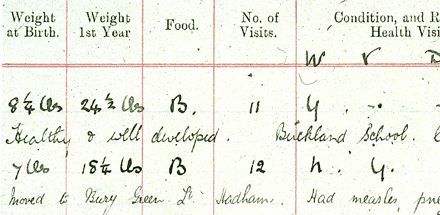 Weight at Birth. Weight 1st Year Food. No. of Visits. Condition, and R
Health Visi
W V D
8 1/4 lbs 24 1/2 lbs B. 11 y. -. -
Healthy & well developed. Buckland School.
7 lbs 18 1/4 lbs B 12 h. y.
Moved to Bury Green Lt. Hadham. Had measles, pne